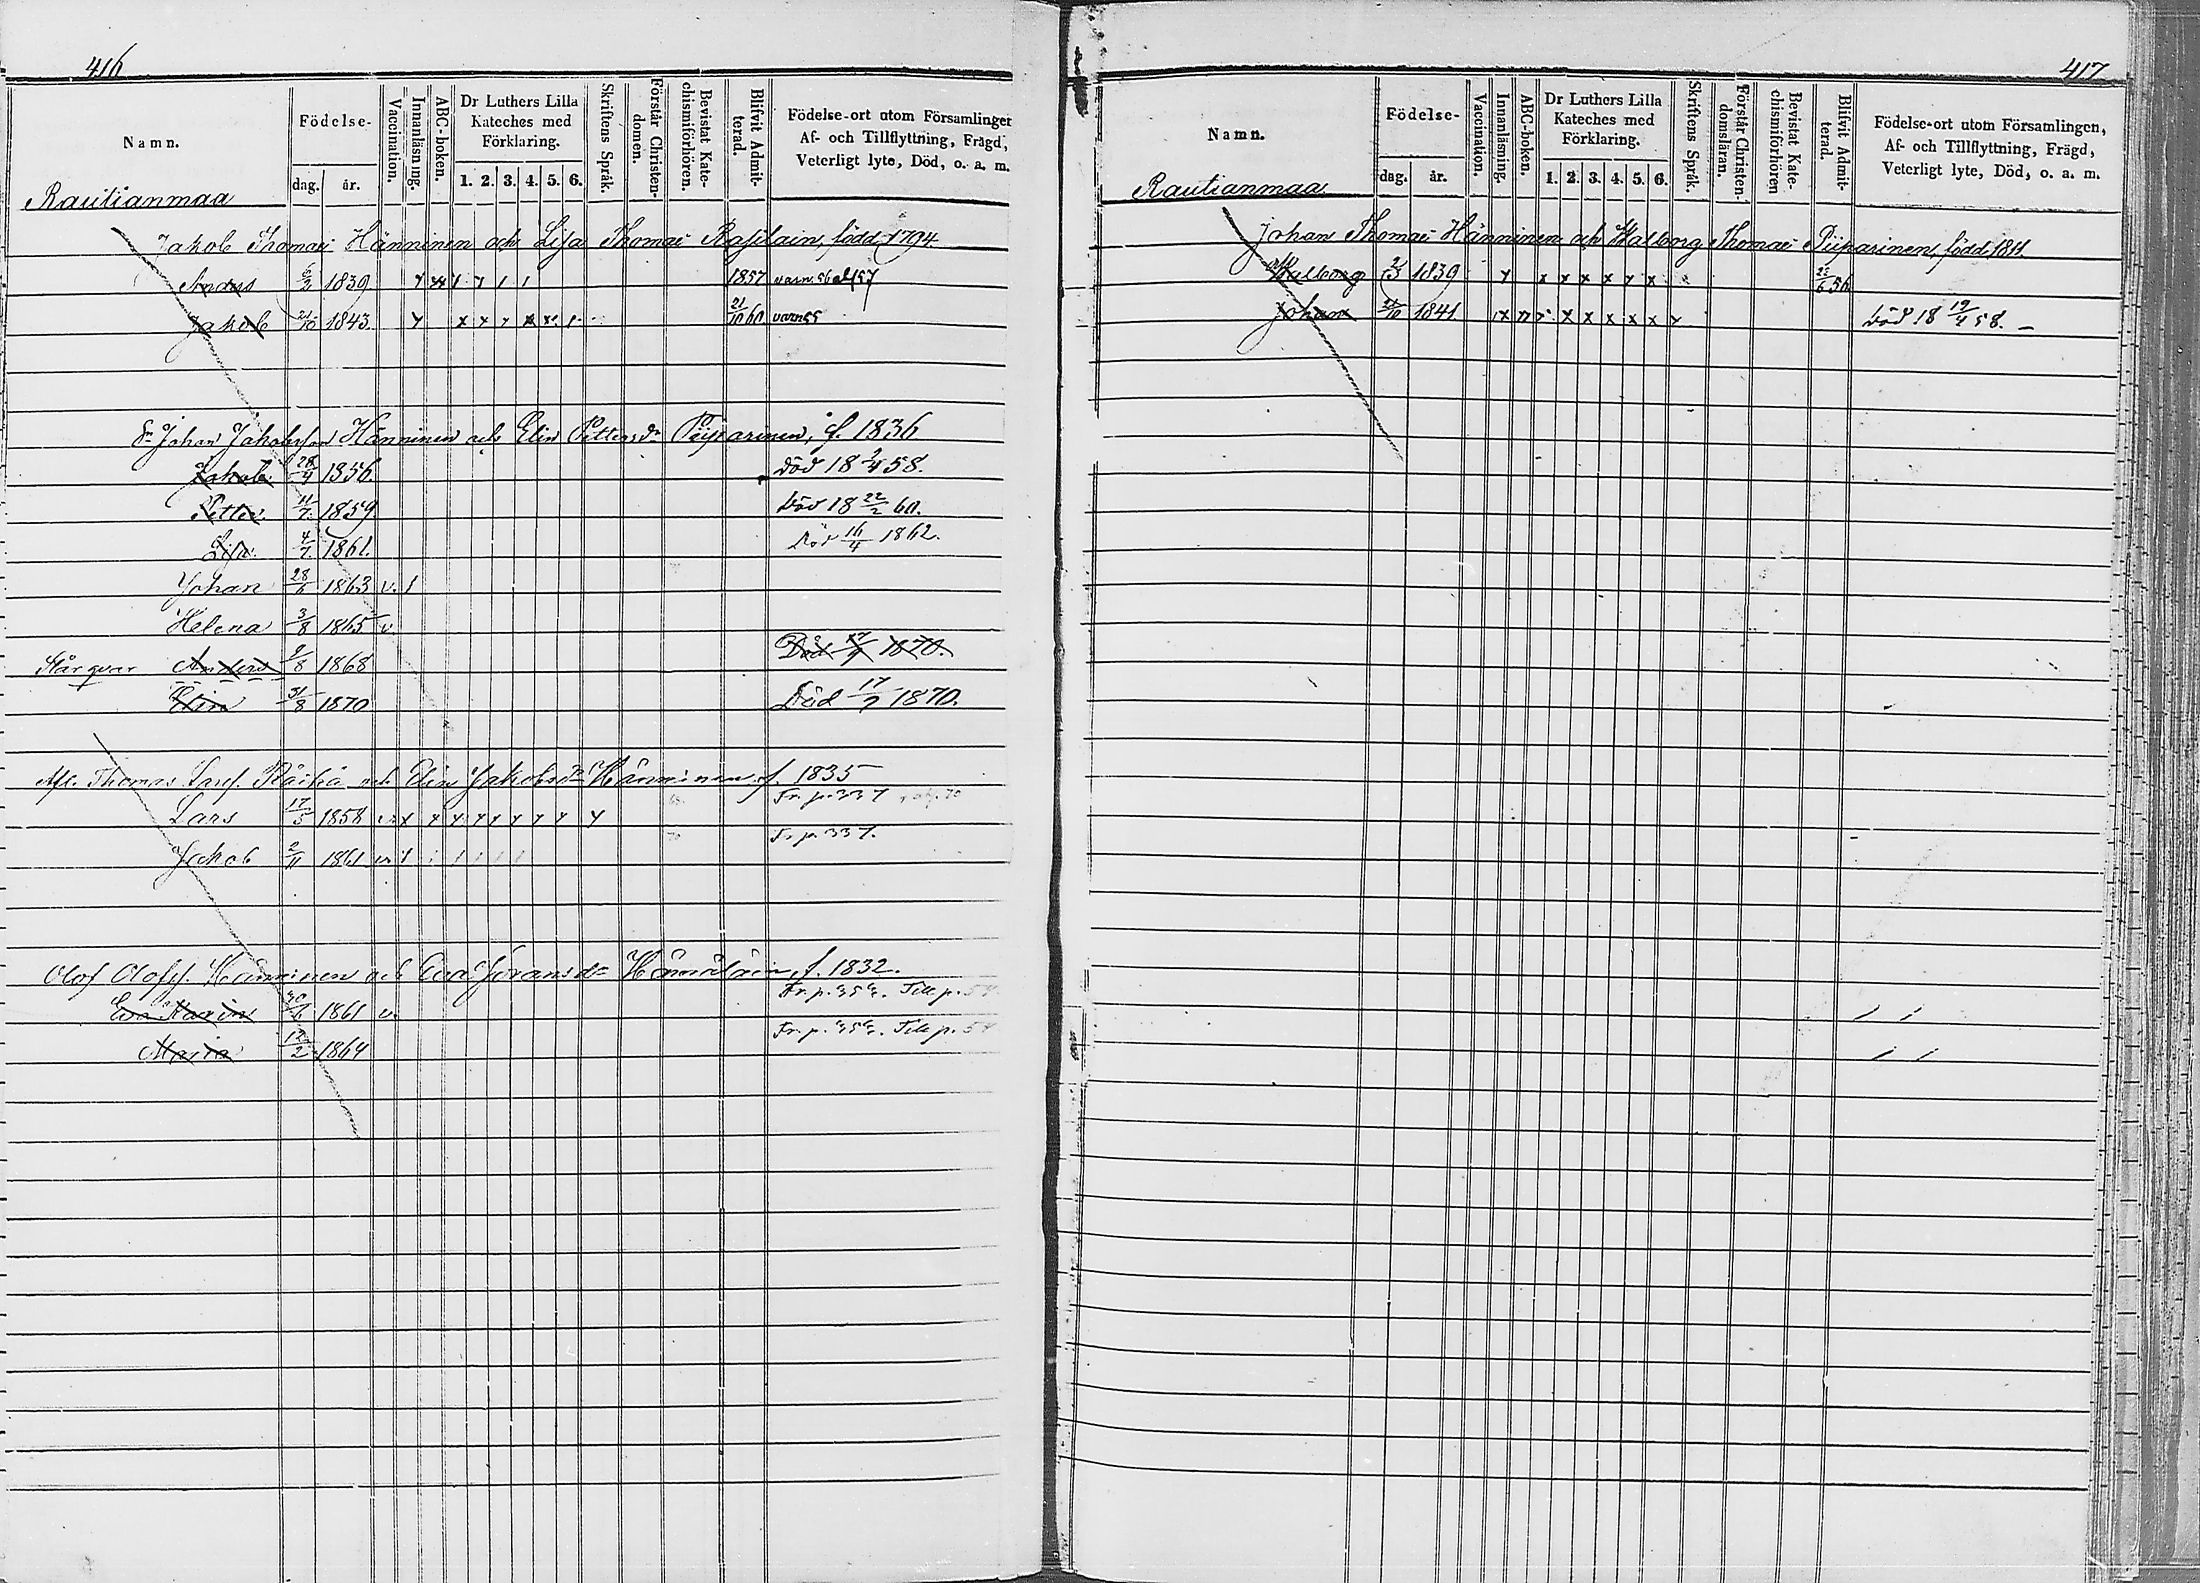 416
Namn.
Födelse-
dag.
år.
Vaccination.
Innanläsning.
ABC-boken.
Dr Luthers Lilla
Kateches med
Förklaring.
1. 2. 3. 4. 5. 6.
Skriftens Språk.
Förstår Christen-
domen.
Bevistat Kate-
chismiförhören.
Blifvit Admit-
terad.
Födelse-ort utom Församlingen
Af- och Tillflyttning, Frägd,
Veterligt lyte, Död, o. a. m.
Rautianmaa
Jakob Thomae Hänninen och Lisa Thomae Rasilain, född 1794
Anders 1839 1857
Jakob 21/10 1843. 21/10 60. varn 55
Sn Johan Jakobsson Hänninen och Elin Pettersdr Piiparinen, f. 1836
Jakob 28/4 1856. Död 18 58.
Petter 11/7 1859 Död 18 22/2 60.
Lisa 4/7 1861. Död 16/4 1862.
Johan 28/6 1863 v. 1
Helena 3/8 1865 v.
Står qvar Anders 9/8 1868 Död 17/9 1870.
Elin 31/8 1870 Död 17/9 1870.
Afl. Thomas Larss. Räihä och Elin Jakobsdr Hänninen f. 1835
Lars 17/5 1858 Fr. p. 337
Jakob 2/11 1861 Fr. p. 337.
Olof Olofss. Hänninen och Eva Göransdr Hämäläin, f. 1832.
Eva Karin 1861 v. Fr. p. 353. Till p.
Maria 12/2 1864 Fr. p. 353. Till p.
417
Namn.
Födelse-
dag.
år.
Vaccination.
Innanläsning.
ABC-boken.
Dr Luthers Lilla
Kateches med
Förklaring.
1. 2. 3. 4. 5. 6.
Skriftens Språk.
Förstår Christen-
domsläran.
Bevistat Kate-
chismiförhören
Blifvit Admit-
terad.
Födelse-ort utom Församlingen,
Af- och Tillflyttning, Frägd,
Veterligt lyte, Död, o. a. m.
Rautianmaa
Johan Thomae Hänninen och Walborg Thomae Piiparinen, född 1811
Walborg 2/3 1839 x x x x x x
Johan 1841 x x x x x Död 18 19/4 58.